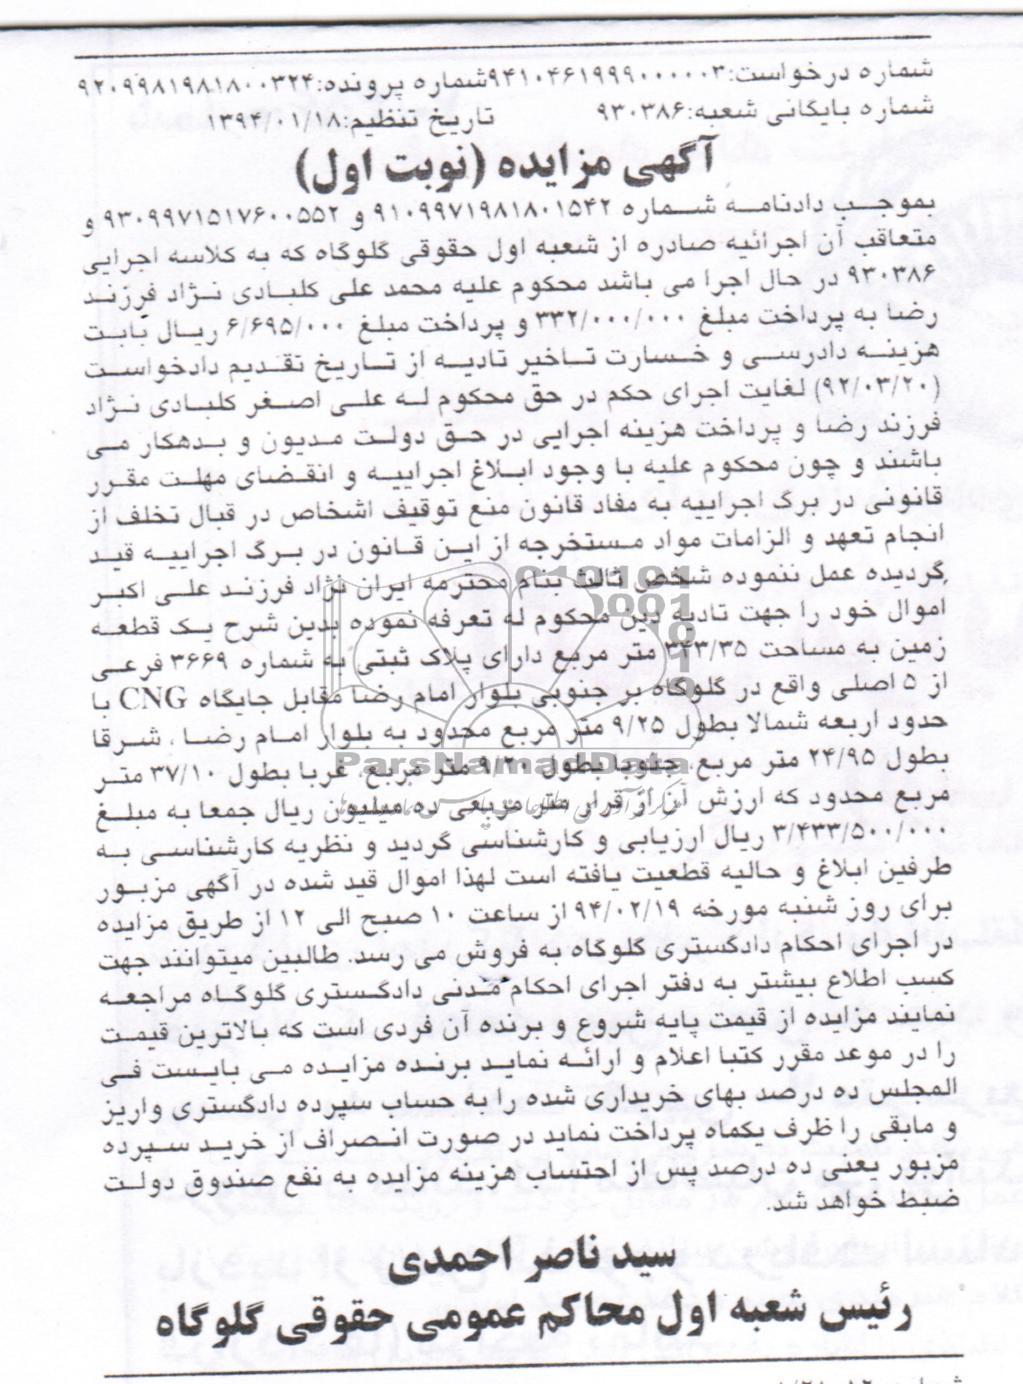 شماره درخواست:۹۴۱۰۴۶۱۹۹۹۰۰۰۰۰۳ شماره پرونده:۹۲۰۹۹۸۱۹۸۱۸۰۰۳۲۴
شماره بایگانی شعبه:۹۳۰۳۸۶ تاریخ تنظیم:۱۳۹۴/۰۱/۱۸
آگهی مزایده (نوبت اول)
بموجب دادنامه شماره ۹۱۰۹۹۷۱۹۸۱۸۰۱۵۴۲ و ۹۳۰۹۹۷۱۵۱۷۶۰۰۵۵۲ و
متعاقب آن اجرائیه صادره از شعبه اول حقوقی گلوگاه که به کلاسه اجرایی
۹۳۰۳۸۶ در حال اجرا می باشد محکوم علیه محمد علی کلبادی نژاد فرزند
رضا به پرداخت مبلغ ۳۳۲/۰۰۰/۰۰۰ و پرداخت مبلغ ۶/۶۹۵/۰۰۰ ریال بابت
هزینه دادرسی و خسارت تاخیر تادیه از تاریخ تقدیم دادخواست
(۹۲/۰۳/۲۰) لغایت اجرای حکم در حق محکوم له علی اصغر کلبادی نژاد
فرزند رضا و پرداخت هزینه اجرایی در حق دولت مدیون و بدهکار می
باشند و چون محکوم علیه با وجود ابلاغ اجراییه و انقضای مهلت مقرر
قانونی در برگ اجراییه به مفاد قانون منع توقیف اشخاص در قبال تخلف از
انجام تعهد و الزامات مواد مستخرجه از این قانون در برگ اجراییه قید
گردیده عمل ننموده شخص ثالث بنام محترمه ایران نژاد فرزند علی اکبر
اموال خود را جهت تادیه دین محکوم له تعرفه نموده بدین شرح یک قطعه
زمین به مساحت ۳۴۳/۳۵ متر مربع دارای پلاک ثبتی به شماره ۳۶۶۹ فرعی
از ۵ اصلی واقع در گلوگاه بر جنوبی بلوار امام رضا مقابل جایگاه CNG با
حدود اربعه شمالا بطول ۹/۲۵ متر مربع محدود به بلوار امام رضا ، شرقا
بطول ۲۴/۹۵ متر مربع، جنوبا بطول ۹/۲۰ متر مربع، غربا بطول ۳۷/۱۰ متر
مربع محدود که ارزش آن از قرار متر مربعی ده میلیون ریال جمعا به مبلغ
۳/۴۳۳/۵۰۰/۰۰۰ ریال ارزیابی و کارشناسی گردید و نظریه کارشناسی به
طرفین ابلاغ و حالیه قطعیت یافته است لهذا اموال قید شده در آگهی مزبور
برای روز شنبه مورخه ۹۴/۰۲/۱۹ از ساعت ۱۰ صبح الی ۱۲ از طریق مزایده
در اجرای احکام دادگستری گلوگاه به فروش می رسد. طالبین میتوانند جهت
کسب اطلاع بیشتر به دفتر اجرای احکام مدنی دادگستری گلوگاه مراجعه
نمایند مزایده از قیمت پایه شروع و برنده آن فردی است که بالاترین قیمت
را در موعد مقرر کتبا اعلام و ارائه نماید برنده مزایده می بایست فی
المجلس ده درصد بهای خریداری شده را به حساب سپرده دادگستری واریز
و مابقی را ظرف یکماه پرداخت نماید در صورت انصراف از خرید سپرده
مزبور یعنی ده درصد پس از احتساب هزینه مزایده به نفع صندوق دولت
ضبط خواهد شد.
سید ناصر احمدی
رئیس شعبه اول محاکم عمومی حقوقی گلوگاه
ParsNamadData